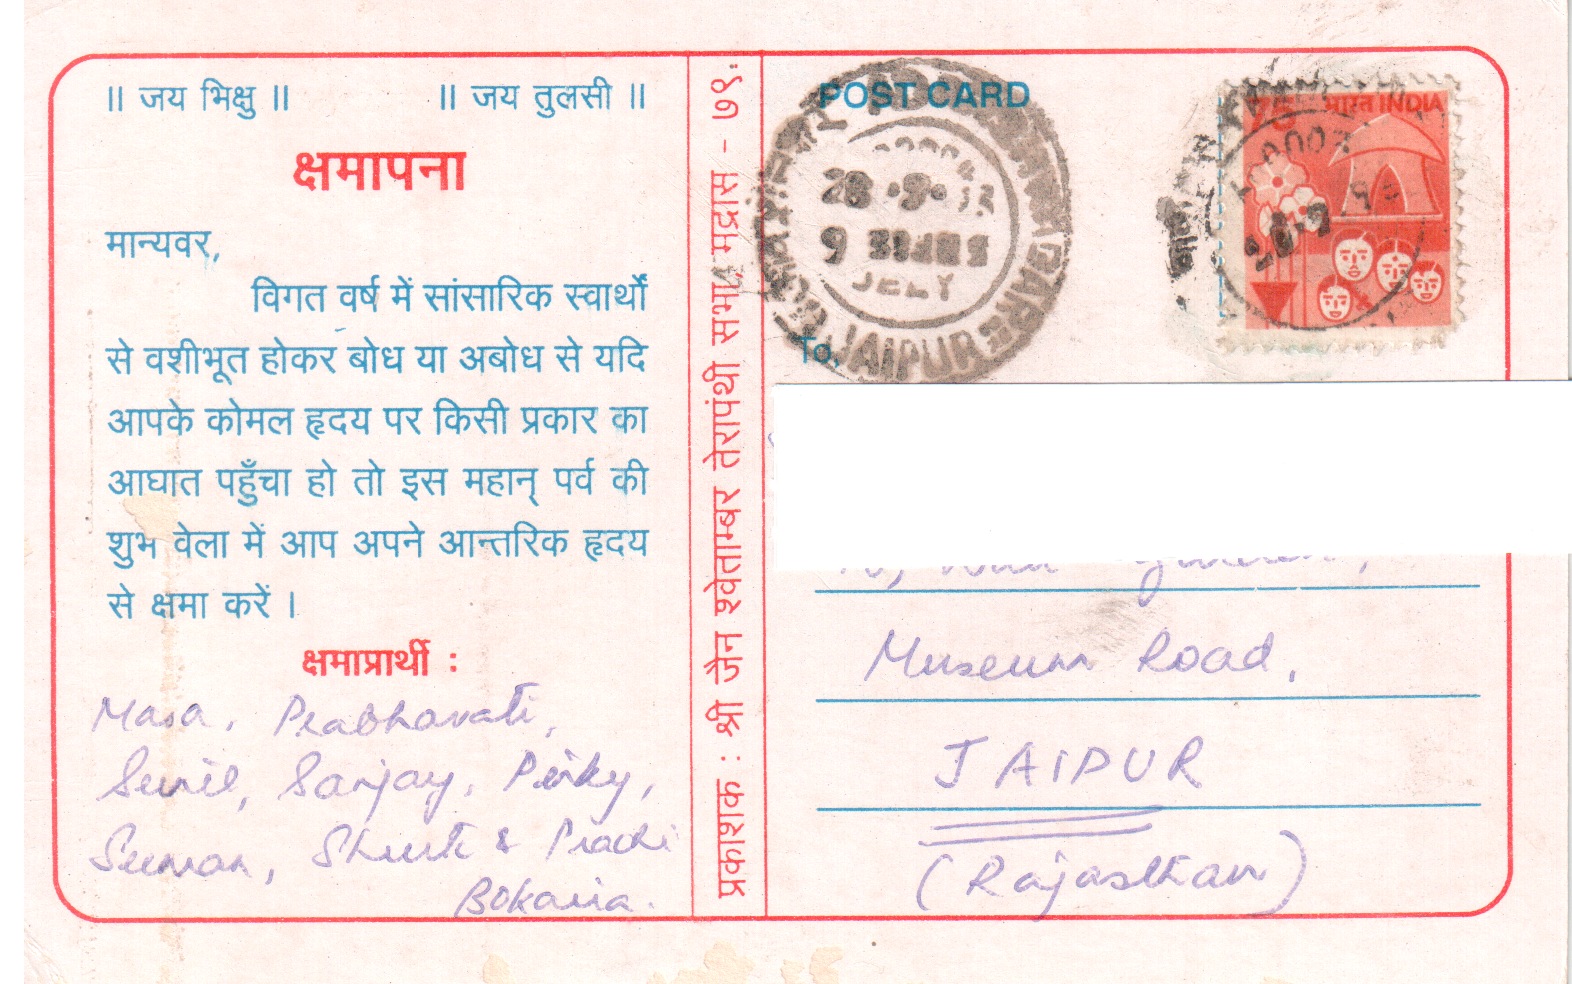 ॥ जय भिक्षु ॥ ॥ जय तुलसी ॥
क्षमापना
मान्यवर,
विगत वर्ष में सांसारिक स्वार्थों
से वशीभूत होकर बोध या अबोध से यदि
आपके कोमल हृदय पर किसी प्रकार का
आघात पहुँचा हो तो इस महान् पर्व की
शुभ वेला में आप अपने आन्तरिक हृदय
से क्षमा करें ।
क्षमाप्रार्थी :
Masa, Prabhavati,
Sunil, Sanjay, Pinky,
Suman, Shruti & Prachi
Bokaria.
प्रकाशक : श्री जैन श्वेताम्बर तेरापंथी सभा, मद्रास - ७९.
POST CARD
JAIPUR
75 भारत INDIA
To,
Museum Road,
JAIPUR
(Rajasthan)